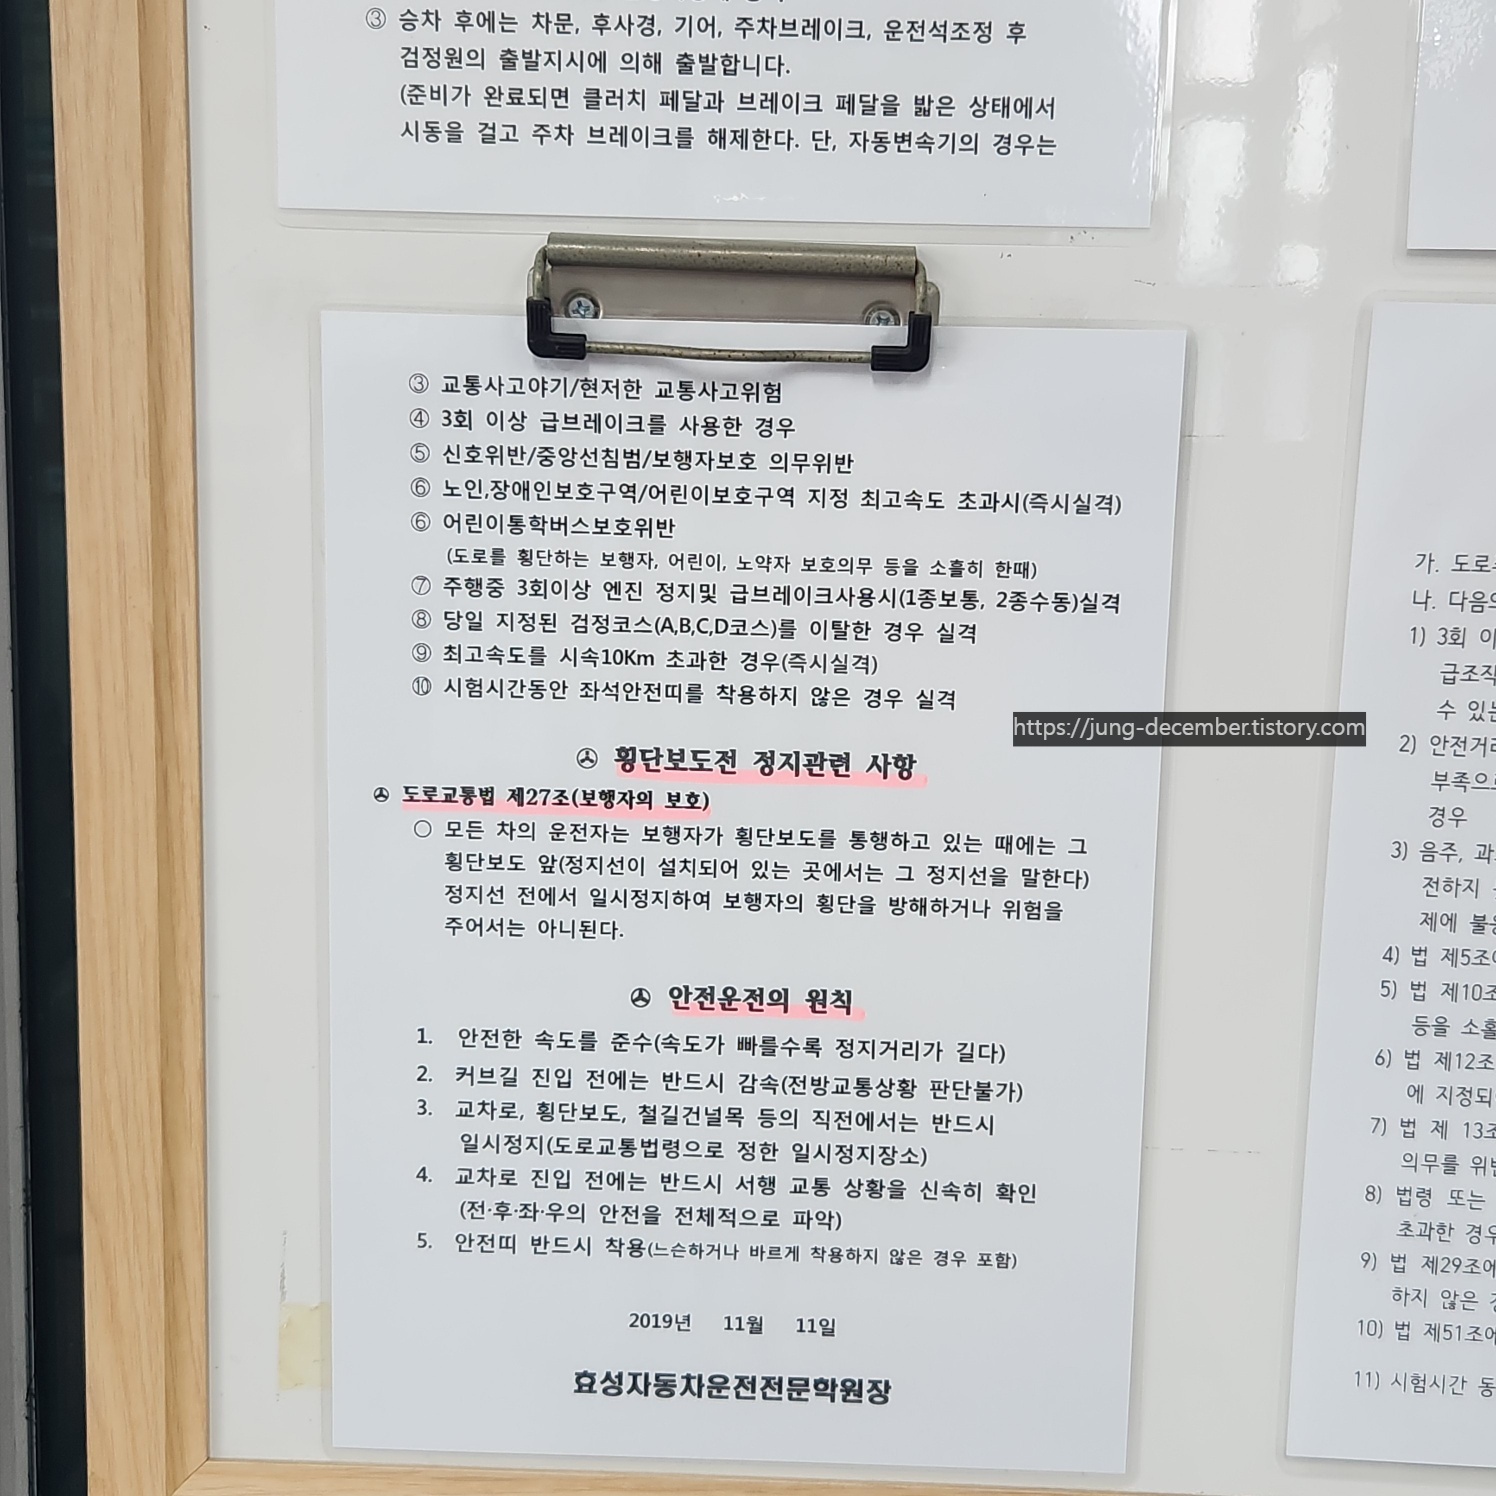 ③ 승차 후에는 차문, 후사경, 기어, 주차브레이크, 운전석조정 후
검정원의 출발지시에 의해 출발합니다.
(준비가 완료되면 클러치 페달과 브레이크 페달을 밟은 상태에서
시동을 걸고 주차 브레이크를 해제한다. 단, 자동변속기의 경우는
③ 교통사고야기/현저한 교통사고위험
④ 3회 이상 급브레이크를 사용한 경우
⑤ 신호위반/중앙선침범/보행자보호 의무위반
⑥ 노인,장애인보호구역/어린이보호구역 지정 최고속도 초과시(즉시실격)
⑥ 어린이통학버스보호위반
(도로를 횡단하는 보행자, 어린이, 노약자 보호의무 등을 소흘히 한때)
⑦ 주행중 3회이상 엔진 정지및 급브레이크사용시(1종보통, 2종수동)실격
⑧ 당일 지정된 검정코스(A,B,C,D코스)를 이탈한 경우 실격
⑨ 최고속도를 시속10Km 초과한 경우(즉시실격)
⑩ 시험시간동안 좌석안전띠를 착용하지 않은 경우 실격
https://jung-december.tistory.com
✇ 횡단보도전 정지관련 사항
✇ 도로교통법 제27조(보행자의 보호)
○ 모든 차의 운전자는 보행자가 횡단보도를 통행하고 있는 때에는 그
횡단보도 앞(정지선이 설치되어 있는 곳에서는 그 정지선을 말한다)
정지선 전에서 일시정지하여 보행자의 횡단을 방해하거나 위험을
주어서는 아니된다.
✇ 안전운전의 원칙
1. 안전한 속도를 준수(속도가 빠를수록 정지거리가 길다)
2. 커브길 진입 전에는 반드시 감속(전방교통상황 판단불가)
3. 교차로, 횡단보도, 철길건널목 등의 직전에서는 반드시
일시정지(도로교통법령으로 정한 일시정지장소)
4. 교차로 진입 전에는 반드시 서행 교통 상황을 신속히 확인
(전·후·좌·우의 안전을 전체적으로 파악)
5. 안전띠 반드시 착용(느슨하거나 바르게 착용하지 않은 경우 포함)
2019년 11월 11일
효성자동차운전전문학원장
가. 도로
나. 다음
1) 3회 이
급조작
수 있는
2) 안전거리
부족으로
경우
3) 음주, 과
전하지
제에 불
4) 법 제5조
5) 법 제10조
등을 소홀
6) 법 제12조
에 지정되
7) 법 제 13조
의무를 위반
8) 법령 또는
초과한 경우
9) 법 제29조에
하지 않은
10) 법 제51조에
11) 시험시간 동